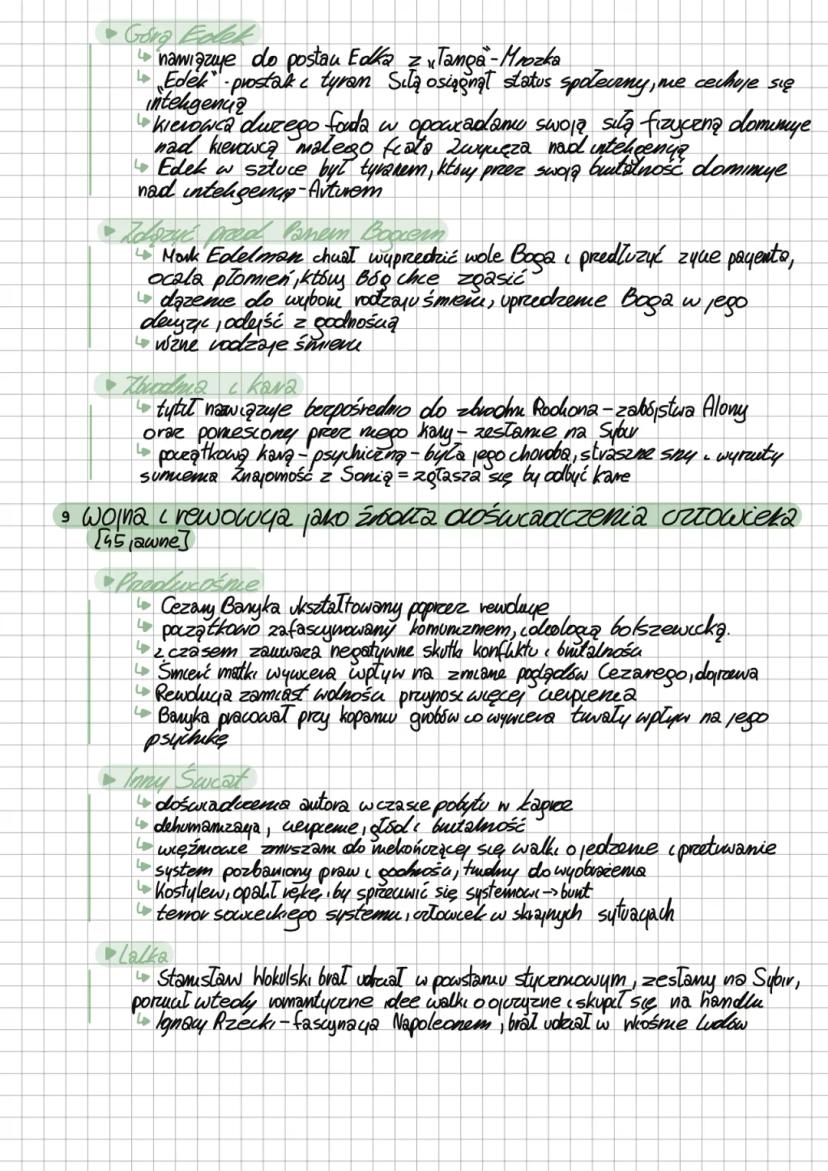 ▸ Górą Edek
↳ nawiązuje do postaci Edka z „Tanga"-Mrożka
↳ „Edek" - prostak i tyran Siłą osiągnął status społeczny, nie cechuje się
inteligencją
↳ kierowca dużego forda w opowiadaniu swoją siłą fizyczną dominuje
nad kierowcą małego fiata Zwycięża nad inteligencją
↳ Edek w sztuce był tyranem, który przez swoją brutalność dominuje
nad inteligencją - Arturem
▸ Zdążyć przed Panem Bogiem
↳ Marek Edelman chciał wyprzedzić wole Boga i przedłużyć życie pacjenta,
ocala płomień, który Bóg chce zgasić
↳ dążenie do wyboru rodzaju śmierci, uprzedzenie Boga w jego
decyzji, odejść z godnością
↳ różne rodzaje śmierci
▸ Zbrodnia i kara
↳ tytuł nawiązuje bezpośrednio do zbrodni Rodiona - zabójstwa Alony
oraz poniesionej przez niego kary - zesłanie na Sybir
↳ początkową karą - psychiczną - była jego choroba, straszne sny i wyrzuty
sumienia Znajomość z Sonią = zgłasza się by odbyć kare
9 Wojna i rewolucja jako źródła doświadczenia człowieka
[45 jawne]
▸ Przedwiośnie
↳ Cezary Baryka ukształtowany poprzez rewolucje
↳ początkowo zafascynowany komunizmem, ideologią bolszewicką.
↳ z czasem zauważa negatywne skutki konfliktu i brutalności
↳ Śmierć matki wywiera wpływ na zmiane poglądów Cezarego, dojrzewa
↳ Rewolucja zamiast wolności przynosi więcej cierpienia
↳ Baryka pracował przy kopaniu grobów co wywiera trwały wpływ na jego
psychikę
▸ Inny Świat
↳ doświadczenia autora w czasie pobytu w łagrze
↳ dehumanizacja, cierpienie, głód i brutalność
↳ więźniowie zmuszani do niekończącej się walki o jedzenie i przetrwanie
↳ system pozbawiony praw i godności, trudny do wyobrażenia
↳ Kostylew, opalił rękę, by sprzeciwić się systemowi → bunt
↳ terror sowieckiego systemu, człowiek w skrajnych sytuacjach
▸ Lalka
↳ Stanisław Wokulski brał udział w powstaniu styczniowym, zesłany na Sybir,
porzucił wtedy romantyczne idee walki o ojczyzne i skupił się na handlu
↳ Ignacy Rzecki - fascynacja Napoleonem, brał udział w Wiośnie Ludów